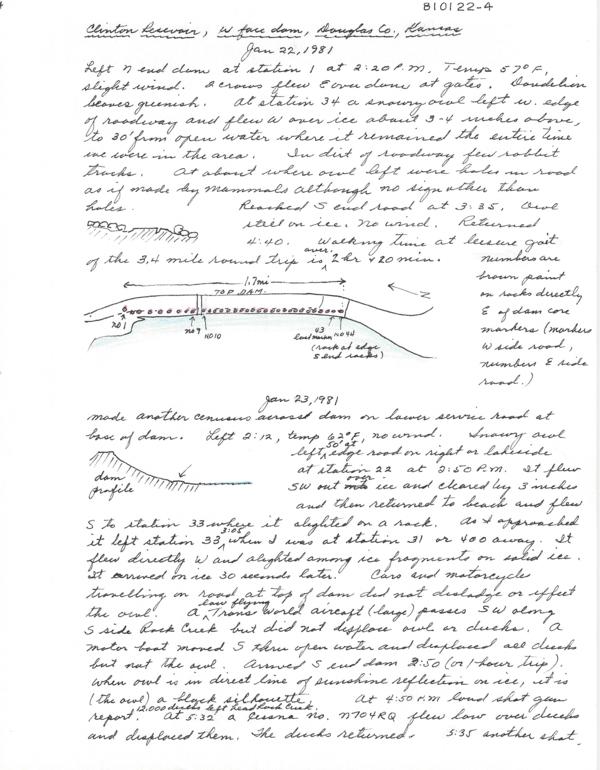 810122-4
Clinton Reservoir, W face dam, Douglas Co., Kansas
Jan 22, 1981
Left N end dam at station 1 at 2:20 P.M. Temp 57°F,
slight wind. 2 crows flew E over dam at gates. Dandelion
leaves greenish. At station 34 a snowy owl left W. edge
of roadway and flew W over ice about 3-4 inches above,
to 30' from open water where it remained the entire time
we were in the area. In dirt of roadway few rabbit
tracks. At about where owl left were holes in road
as if made by mammals although no sign other than
holes. Reached S end road at 3:35. Owl
still on ice. No wind. Returned
4:40. Walking time at leisure gait
of the 3.4 mile round trip is over 2 hr + 20 min.
numbers are
brown paint
on rocks directly
E of dam core
markers (markers
W side road,
numbers E side
road.)
1.7 mi
TOP DAM
N
NO 1
NO 9
NO 10
43
last marker
(rock at edge
S end rocks)
NO 44
Jan 23, 1981
Made another census across dam on lower service road at
base of dam. Left 2:12, temp 62°F, no wind. Snowy owl
left, 50' at edge road on right or lakeside
at station 22 at 2:50 P.M. It flew
SW out over ice and cleared by 3 inches
and then returned to beach and flew
dam
profile
S to station 33 where it alighted on a rock. As I approached
it left station 33, 3:05 when I was at station 31 or 400 away. It
flew directly W and alighted among ice fragments on solid ice.
It arrived on ice 30 seconds later. Cars and motorcycles
travelling on road at top of dam did not dislodge or effect
the owl. A low flying Trans World aircraft (large) passes SW along
S side Rock Creek but did not displace owl or ducks. A
motor boat moved S thru open water and displaced all ducks
but not the owl. Arrived S end dam 2:50 (or 1 hour trip).
When owl is in direct line of sunshine reflection on ice, it is
(the owl) a black silhouette. At 4:50 P.M loud shot gun
report. 12,000 ducks left head Rock Creek. At 5:32 a Cessna No. N704RQ flew low over ducks
and displaced them. The ducks returned. 5:35 another shot